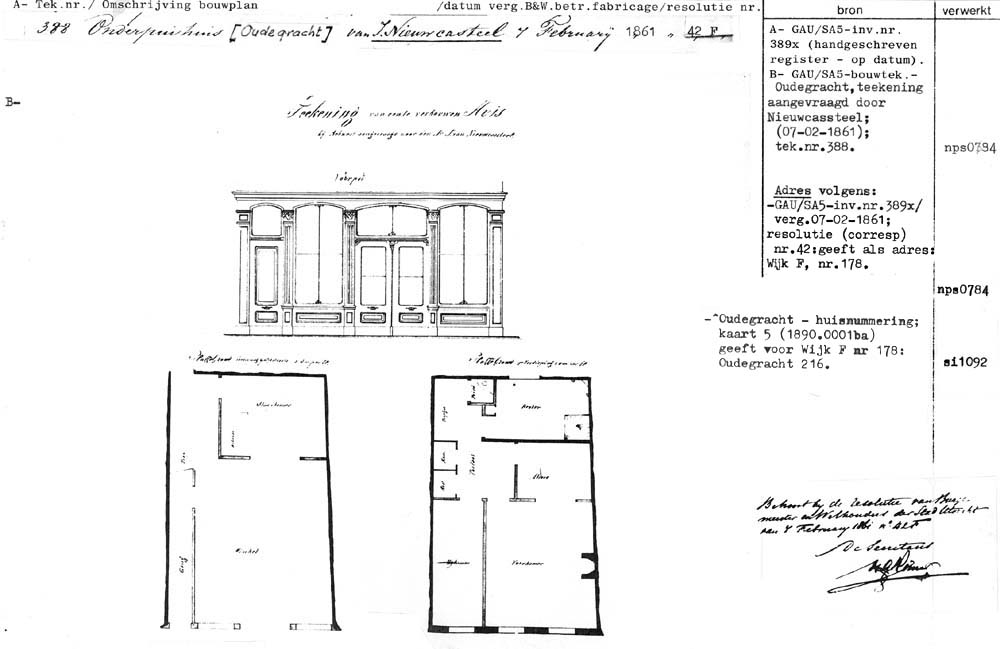 A- Tek.nr./ Omschrijving bouwplan /datum verg.B&W.betr.fabricage/resolutie nr.
388 Onderpuishuis [Oudegracht] van J. Nieuwcasteel 7 Februarij 1861 42 F.
B-
Teekening van eente verbouwen Huis
Voorpui
Winkel
Gang
Keuken
Portaal
Voorkamer
bron
verwerkt
A- GAU/SA5-inv.nr.
389x (handgeschreven
register - op datum).
B- GAU/SA5-bouwtek.-
Oudegracht,teekening
aangevraagd door
Nieuwcassteel;
(07-02-1861);
tek.nr.388.
nps0784
Adres volgens:
-GAU/SA5-inv.nr.389x/
verg.07-02-1861;
resolutie (corresp)
nr.42:geeft als adres:
Wijk F, nr.178.
nps0784
-^Oudegracht - huisnummering;
kaart 5 (1890.0001ba)
geeft voor Wijk F nr 178:
Oudegracht 216.
si1092
Behoort bij de resolutie van Burge-
meester en Wethouders der Stad Utrecht
van 7 Februarij 1861 n° 42 F
De Secretaris